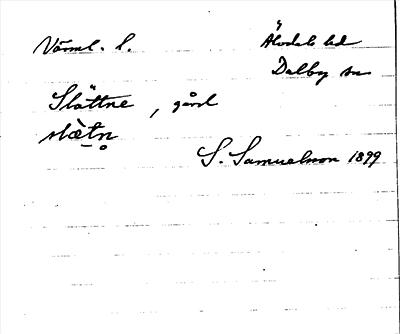 Värml. l. Älvdals hd
Dalby sn
Slättne, gård
slètn̥
S. Samuelsson 1899